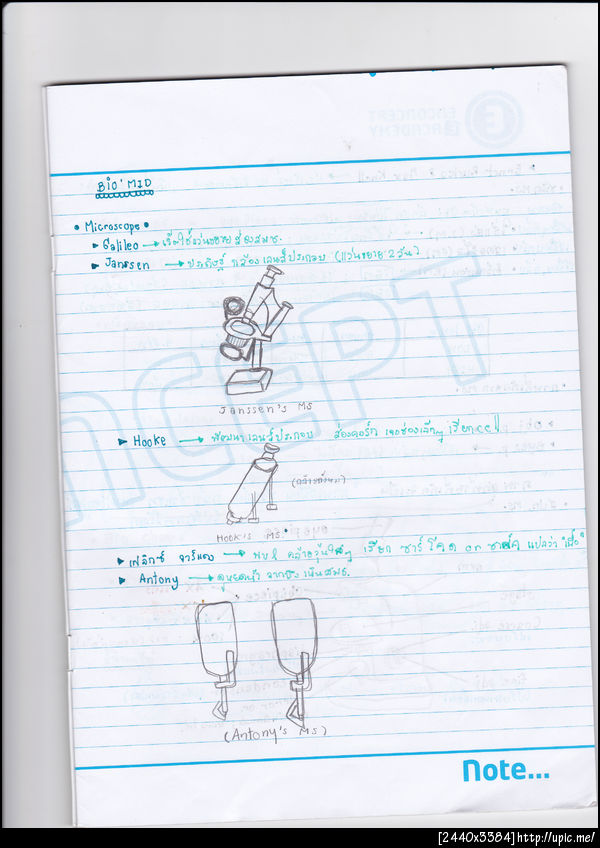 BIO'MID
• Microscope •
► Galileo → เริ่มใช้แว่นขยายส่องสมช.
► Janssen → ประดิษฐ์ กล้องเลนส์ประกอบ (แว่นขยาย 2 อัน)
Janssen's MS
► Hooke → พัฒนาเลนส์ประกอบ ส่องคอร์ก เจอช่องเล็กๆ เรียก cell
Hook's MS.
► เฟลิกซ์ จาร์แดง → พบ คล้ายวุ้นใสๆ เรียก ซาร์โคด or แปลว่า "เนื้อ"
► Antony → ดูหยดน้ำ จากบึง เห็นสมช.
(Antony's MS)
NCEPT
Note...
[2440x3384]http://upic.me/